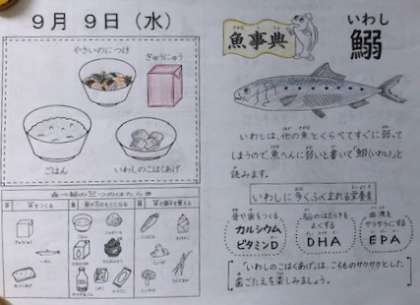 9月 9日(水)
やさいのにつけ
ぎゅうにゅう
ごはん
いわしのこはくあげ
魚事典
いわし
鰯
いわしは、他の魚とくらべてすぐに弱って
しまうので、魚へんに弱いと書いて「鰯(いわし)」と
読みます。
いわしに多くふくまれる栄養素
骨や歯をつくる
カルシウム
ビタミンD
脳のはたらきを
よくする
DHA
血液を
サラサラにする
EPA
「いわしのこはくあげ」は、ころものサクサクとした、
歯ごたえを楽しみましょう。